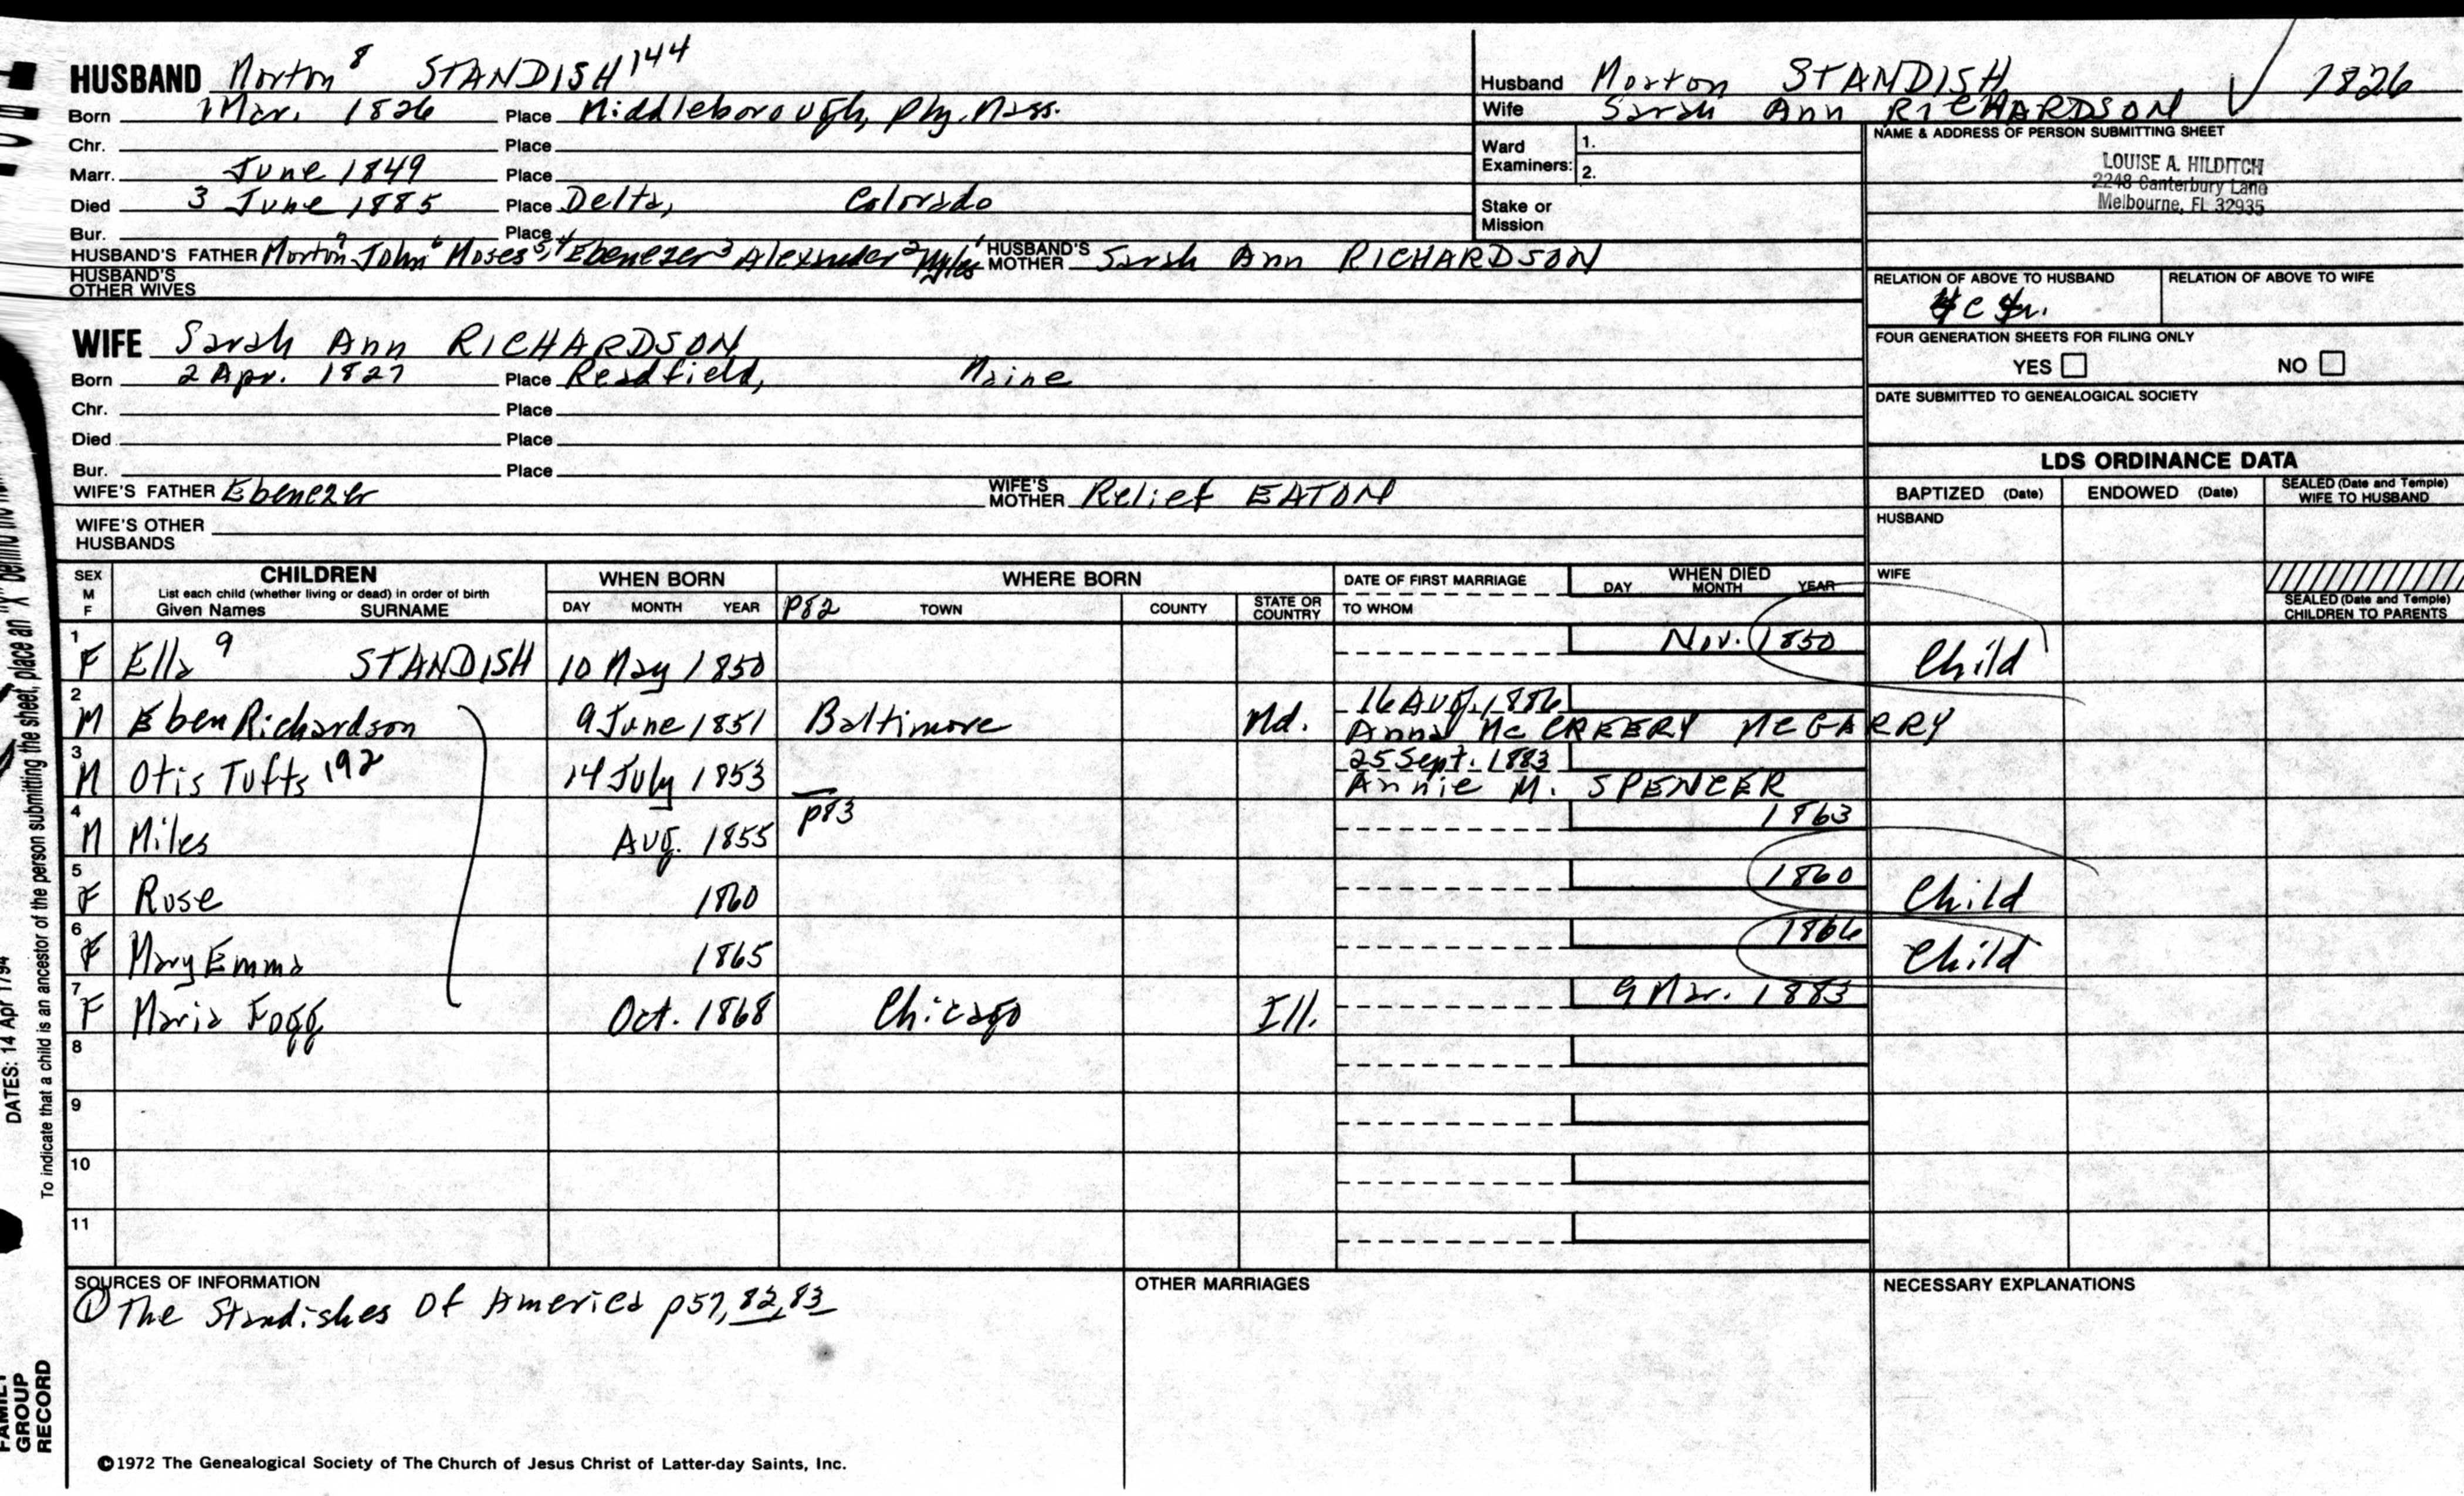 HUSBAND Morton 8 STANDISH 144
Born 1 Mar. 1826 Place Middleborough, Ply. Mass.
Chr. Place
Marr. June 1849 Place
Died 3 June 1885 Place Delta, Colorado
Bur. Place
HUSBAND'S FATHER Morton 7 John 6 Moses 5,4 Ebenezer 3 Alexander 2 Myles 1 HUSBAND'S MOTHER Sarah Ann RICHARDSON
HUSBAND'S OTHER WIVES
Husband Morton STANDISH 1826
Wife Sarah Ann RICHARDSON √
Ward Examiners: 1.
2.
Stake or Mission
NAME & ADDRESS OF PERSON SUBMITTING SHEET
LOUISE A. HILDITCH
2248 Canterbury Lane
Melbourne, FL 32935
RELATION OF ABOVE TO HUSBAND RELATION OF ABOVE TO WIFE
FOUR GENERATION SHEETS FOR FILING ONLY
YES NO
DATE SUBMITTED TO GENEALOGICAL SOCIETY
WIFE Sarah Ann RICHARDSON
Born 2 Apr. 1827 Place Readfield, Maine
Chr. Place
Died Place
Bur. Place
WIFE'S FATHER Ebenezer WIFE'S MOTHER Relief EATON
WIFE'S OTHER HUSBANDS
LDS ORDINANCE DATA
BAPTIZED (Date) ENDOWED (Date) SEALED (Date and Temple) WIFE TO HUSBAND
HUSBAND
WIFE
SEALED (Date and Temple) CHILDREN TO PARENTS
SEX M F CHILDREN WHEN BORN WHERE BORN DATE OF FIRST MARRIAGE WHEN DIED
List each child (whether living or dead) in order of birth
Given Names SURNAME DAY MONTH YEAR P82 TOWN COUNTY STATE OR COUNTRY TO WHOM DAY MONTH YEAR
1 F Ella 9 STANDISH 10 May 1850 Nov. 1850 Child
2 M Eben Richardson 9 June 1851 Baltimore Md. 16 Aug. 1886
Anna McCREERY McGARRY
3 M Otis Tufts 192 14 July 1853 25 Sept. 1883
Annie M. SPENCER
4 M Miles Aug. 1855 p83 1863
5 F Rose 1860 1860 Child
6 F Mary Emma 1865 1866 Child
7 F Maria Fogg Oct. 1868 Chicago Ill. 9 Mar. 1883
8
9
10
11
SOURCES OF INFORMATION OTHER MARRIAGES NECESSARY EXPLANATIONS
① The Standishes Of America p57, 82, 83
©1972 The Genealogical Society of The Church of Jesus Christ of Latter-day Saints, Inc.
To indicate that a child is an ancestor of the person submitting the sheet, place an "X" behind the
DATES: 14 Apr 1794
FAMILY GROUP RECORD